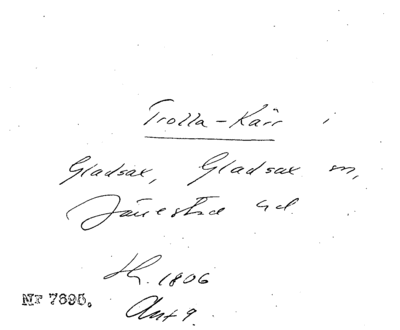 Trolla-Kärr i
Gladsax, Gladsax sn,
Järrestad hd.
Sk. 1806
Akt 9.
Nr 7695.